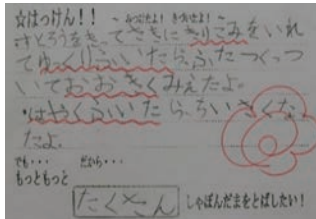 ☆はっけん！！
みつけたよ！ きづいたよ！
すとろうをきってさきにきりこみをいれ
てゆっくりふいたら、ふたつくっつ
いておおきくみえたよ。
・はやくふいたら、ちいさくなっ
たよ。
でも・・・ だから・・・
もっともっと
たくさん しゃぼんだまをとばしたい！